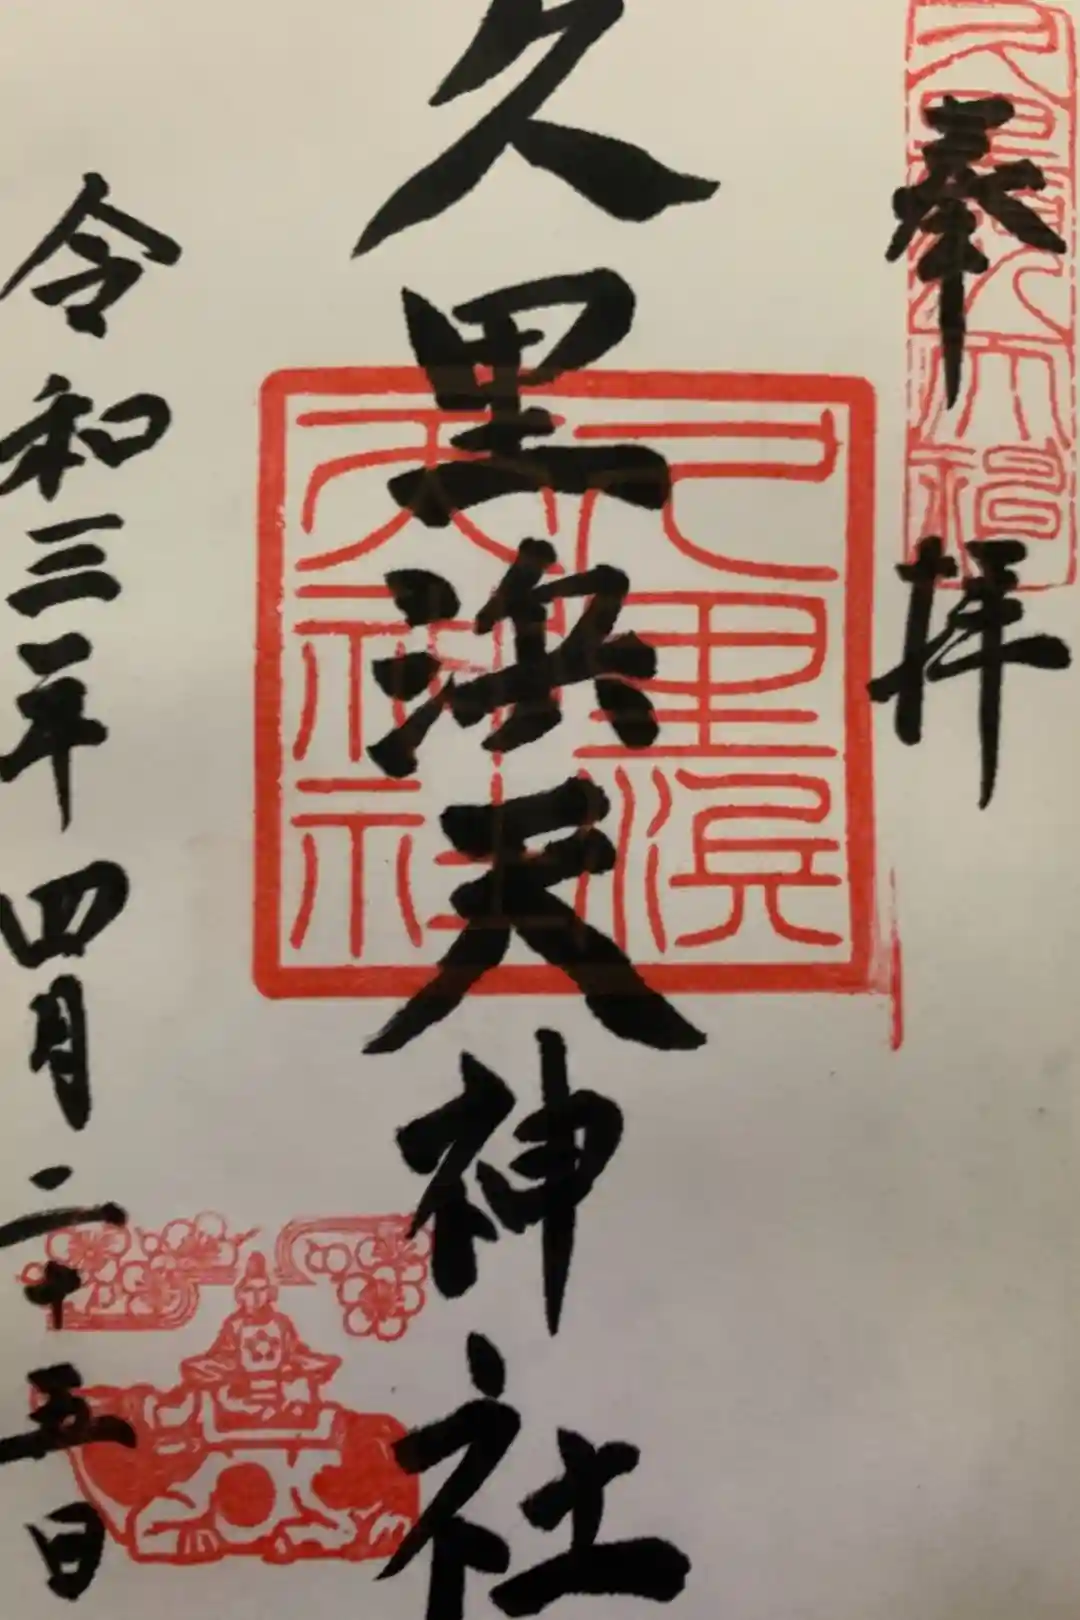 奉拝
久里浜天神社
令和三年四月二十五日
久里浜
天神社